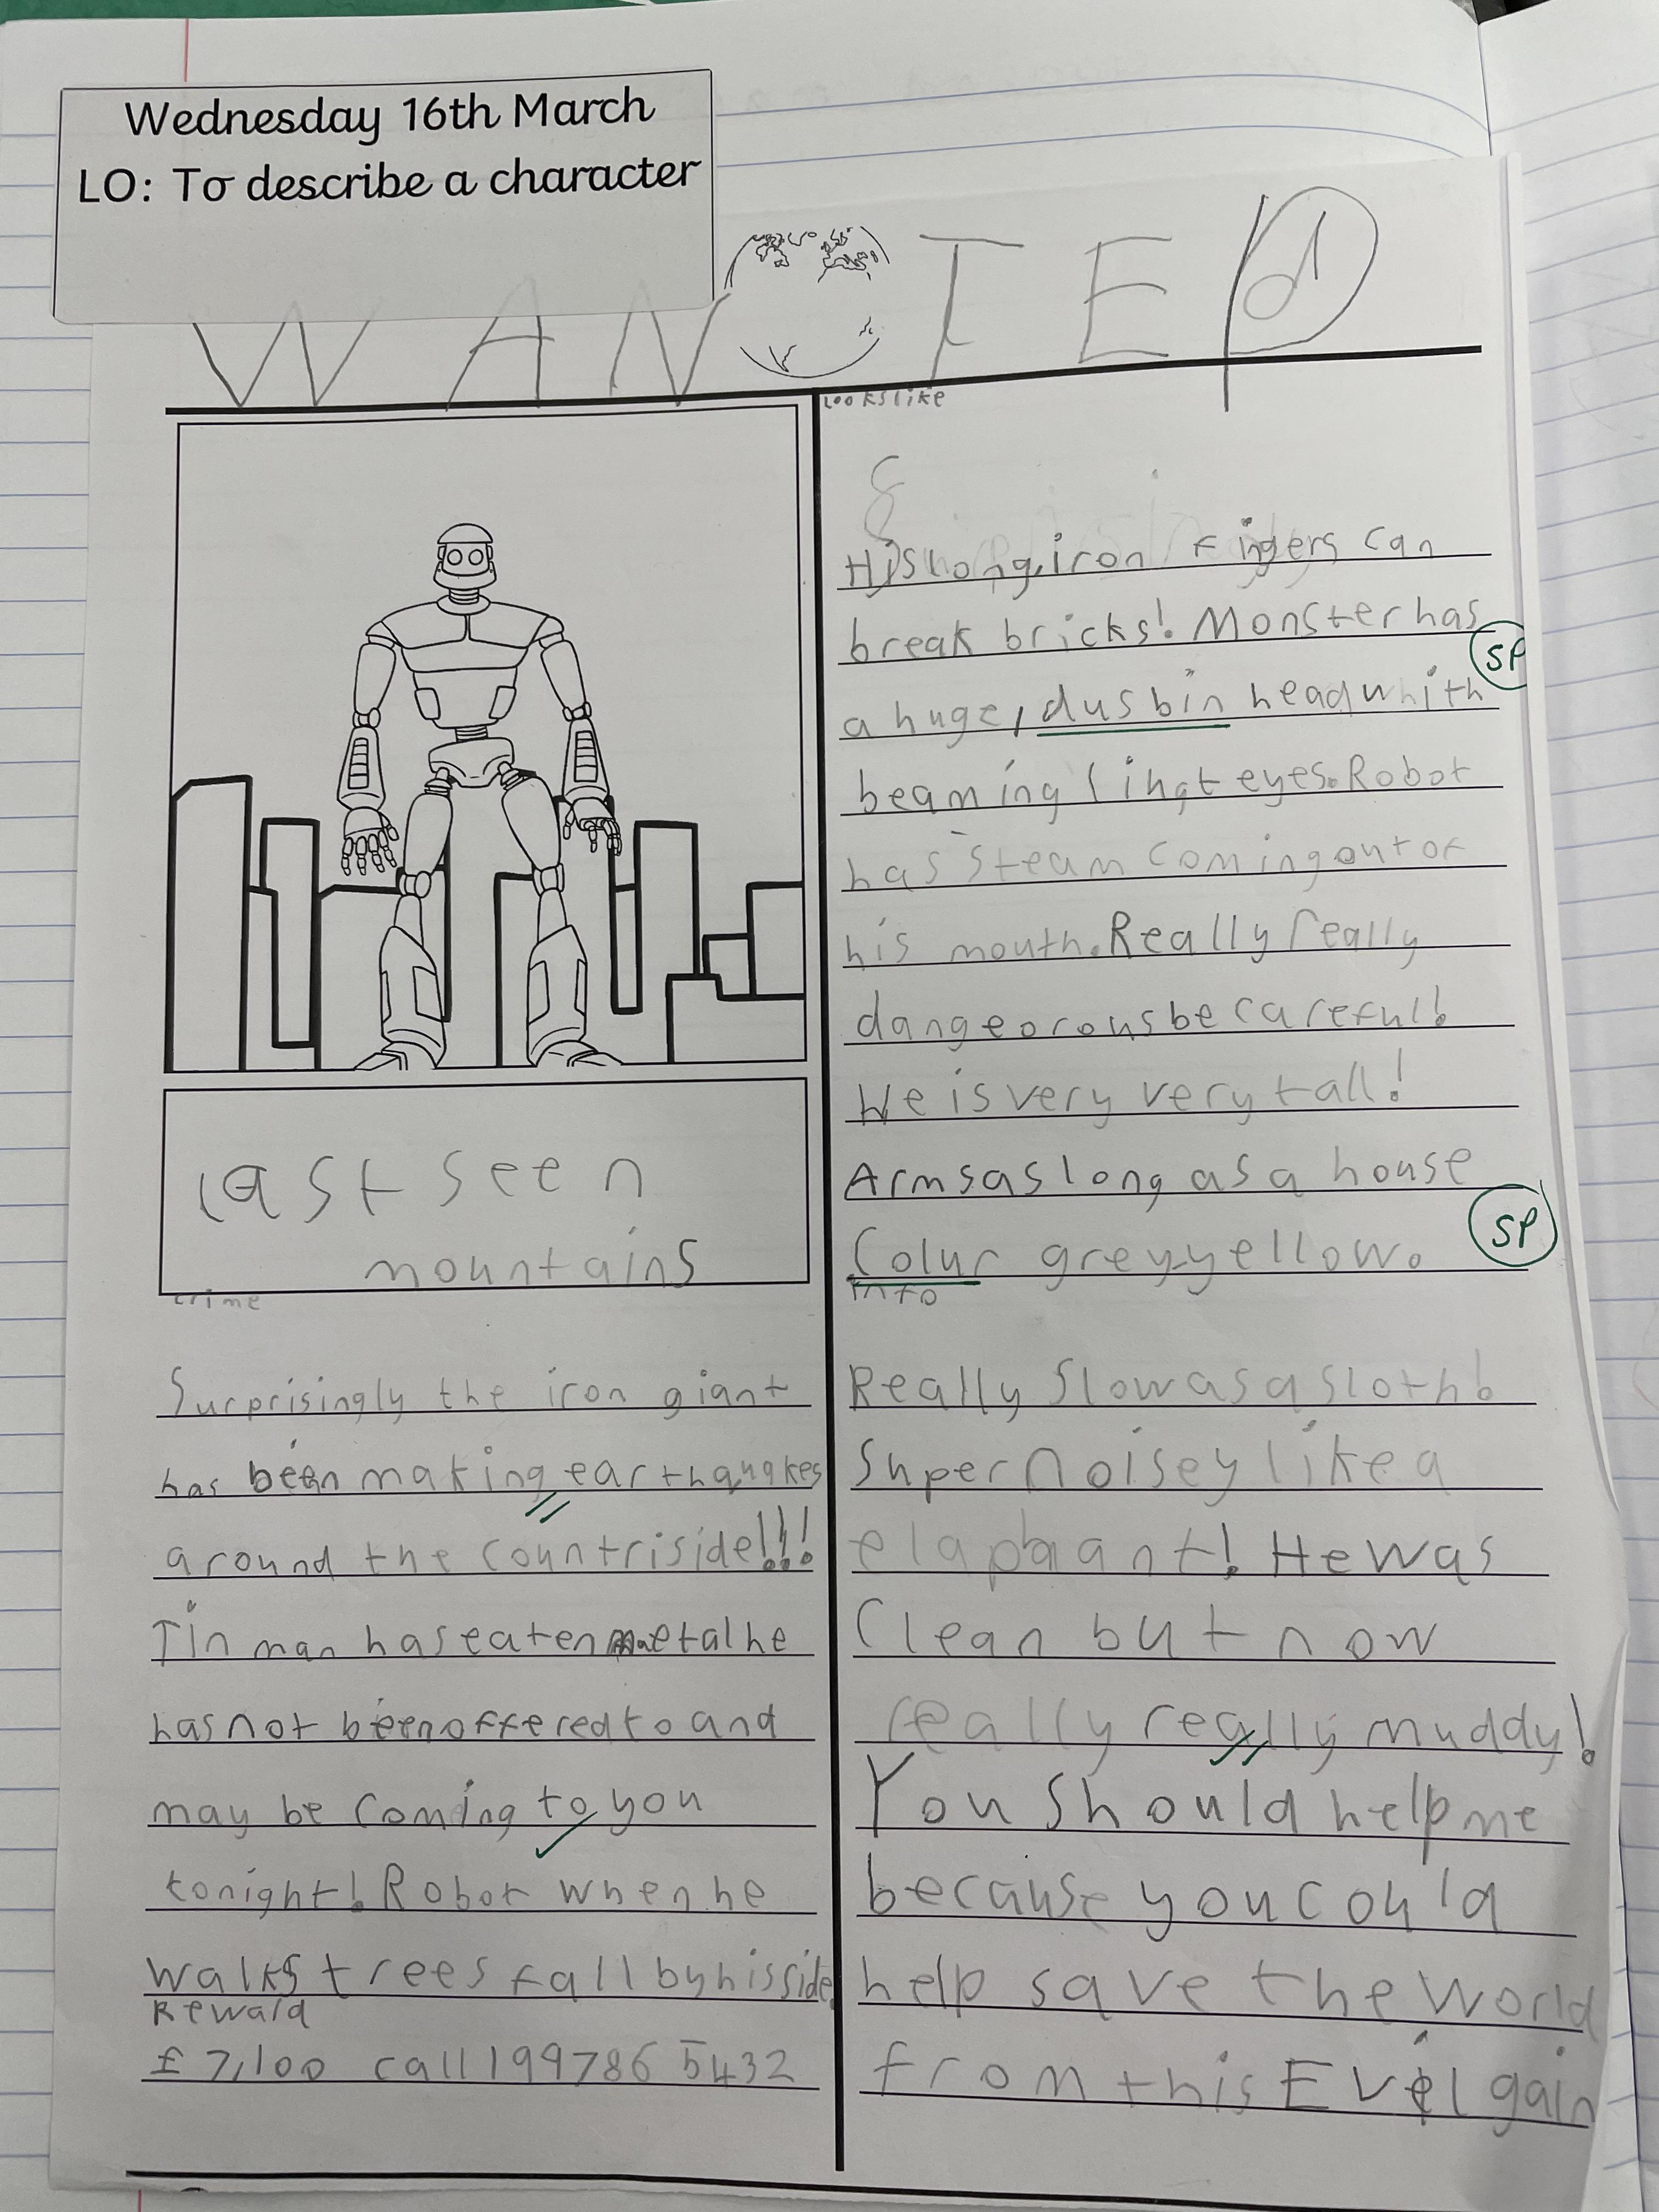 Wednesday 16th March
LO: To describe a character
WANTED
last seen
mountains
crime
Surprisingly the iron giant
has been making earthquakes
around the countriside!!!
Tin man has eaten metal he
has not been offered to and
may be coming to you
tonight! Robot when he
walks trees fall by his side.
Reward
£7,100 call 199786 5432
Looks like
His long, iron fingers can
break bricks! Monster has
SP
a huge, dusbin head whith
beaming lihgt eyes. Robot
has steam coming out of
his mouth. Really really
dangeorous be careful!
He is very very tall!
Arms as long as a house
Colur grey-yellow.
SP
info
Really slow as a sloth!
Super noisey like a
elaphant! He was
Clean but now
really really muddy!
You should help me
because you could
help save the world
from this Evil gain